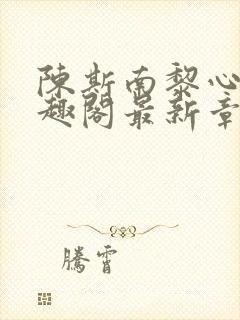 陳斯南黎心
趣閣最新章
騰霄